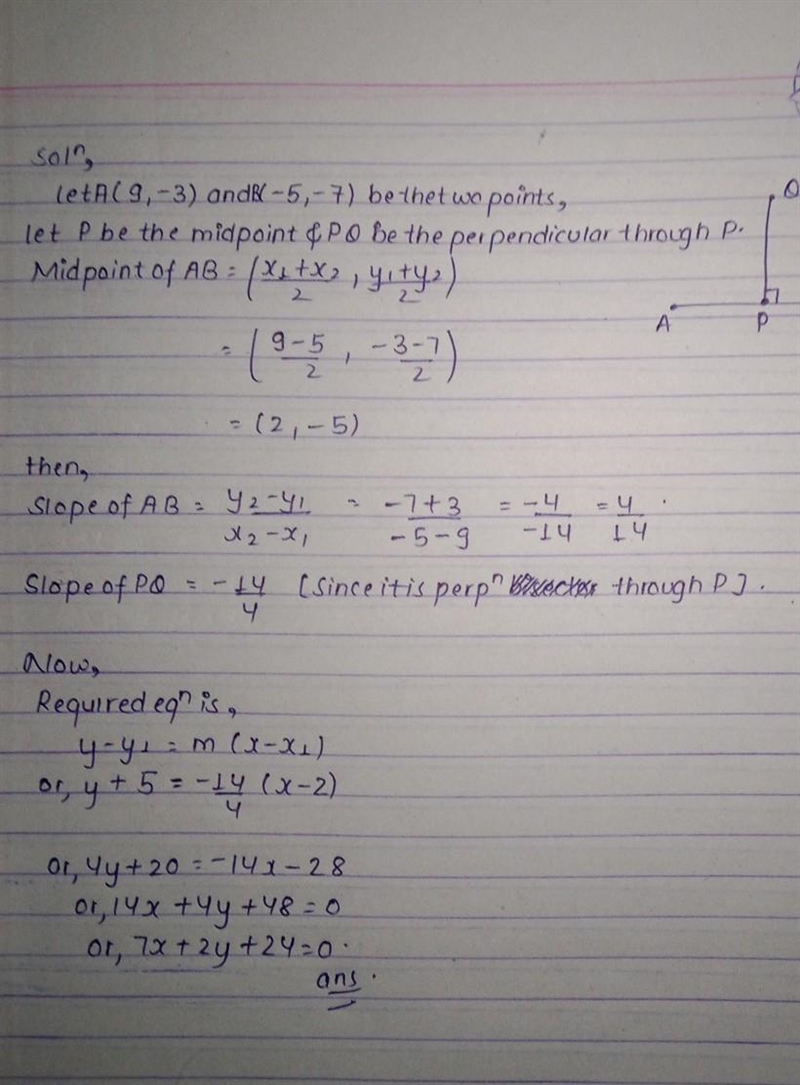 Solⁿ,
let A(9,-3) and B(-5,-7) be the two points,
let P be the midpoint & PQ be the perpendicular through P.
Midpoint of AB = (x₁+x₂/2, y₁+y₂/2)
= (9-5/2, -3-7/2)
= (2,-5)
then,
Slope of AB = y₂-y₁/x₂-x₁ = -7+3/-5-9 = -4/-14 = 4/14.
Slope of PQ = -14/4 [Since it is perpⁿ through P].
Now,
Required eqⁿ is,
y-y₁ = m(x-x₁)
or, y+5 = -14/4 (x-2)
or, 4y+20 = -14x-28
or, 14x+4y+48=0
or, 7x+2y+24=0.
ans.
Q
A P